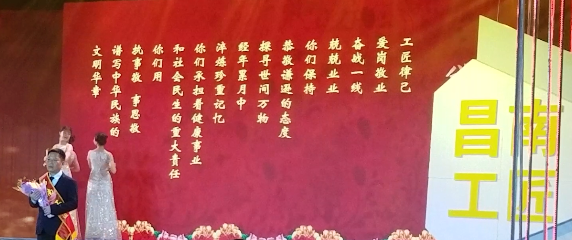 工匠律己
爱岗敬业
奋战一线
兢兢业业
你们保持
恭敬谦逊的态度
探寻世间万物
经年累月中
淬炼珍重记忆
你们承担着健康事业
和社会民生的重大责任
你们用
执事敬 事思敬
谱写中华民族的
文明华章
昌南
工匠